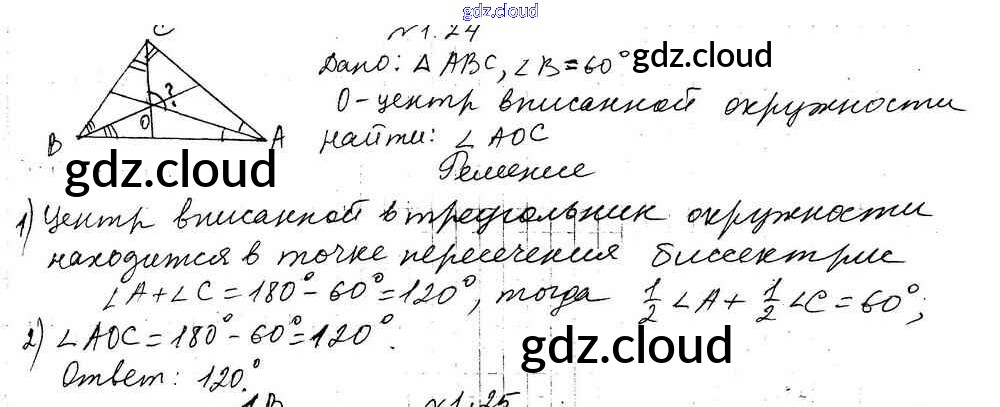 gdz.cloud
№1.24
C
Дано: △ ABC, ∠B=60°
gdz.cloud
?
О-центр вписанной окружности
O
B
A
найти: ∠ AOC
gdz.cloud
Решение
1) Центр вписанной в треугольник окружности
находится в точке пересечения биссектрис
∠A+∠C=180°-60°=120°, тогда 1/2 ∠A+ 1/2 ∠C=60°;
2) ∠AOC=180°-60°=120°.
gdz.cloud
Ответ: 120°.
1.25